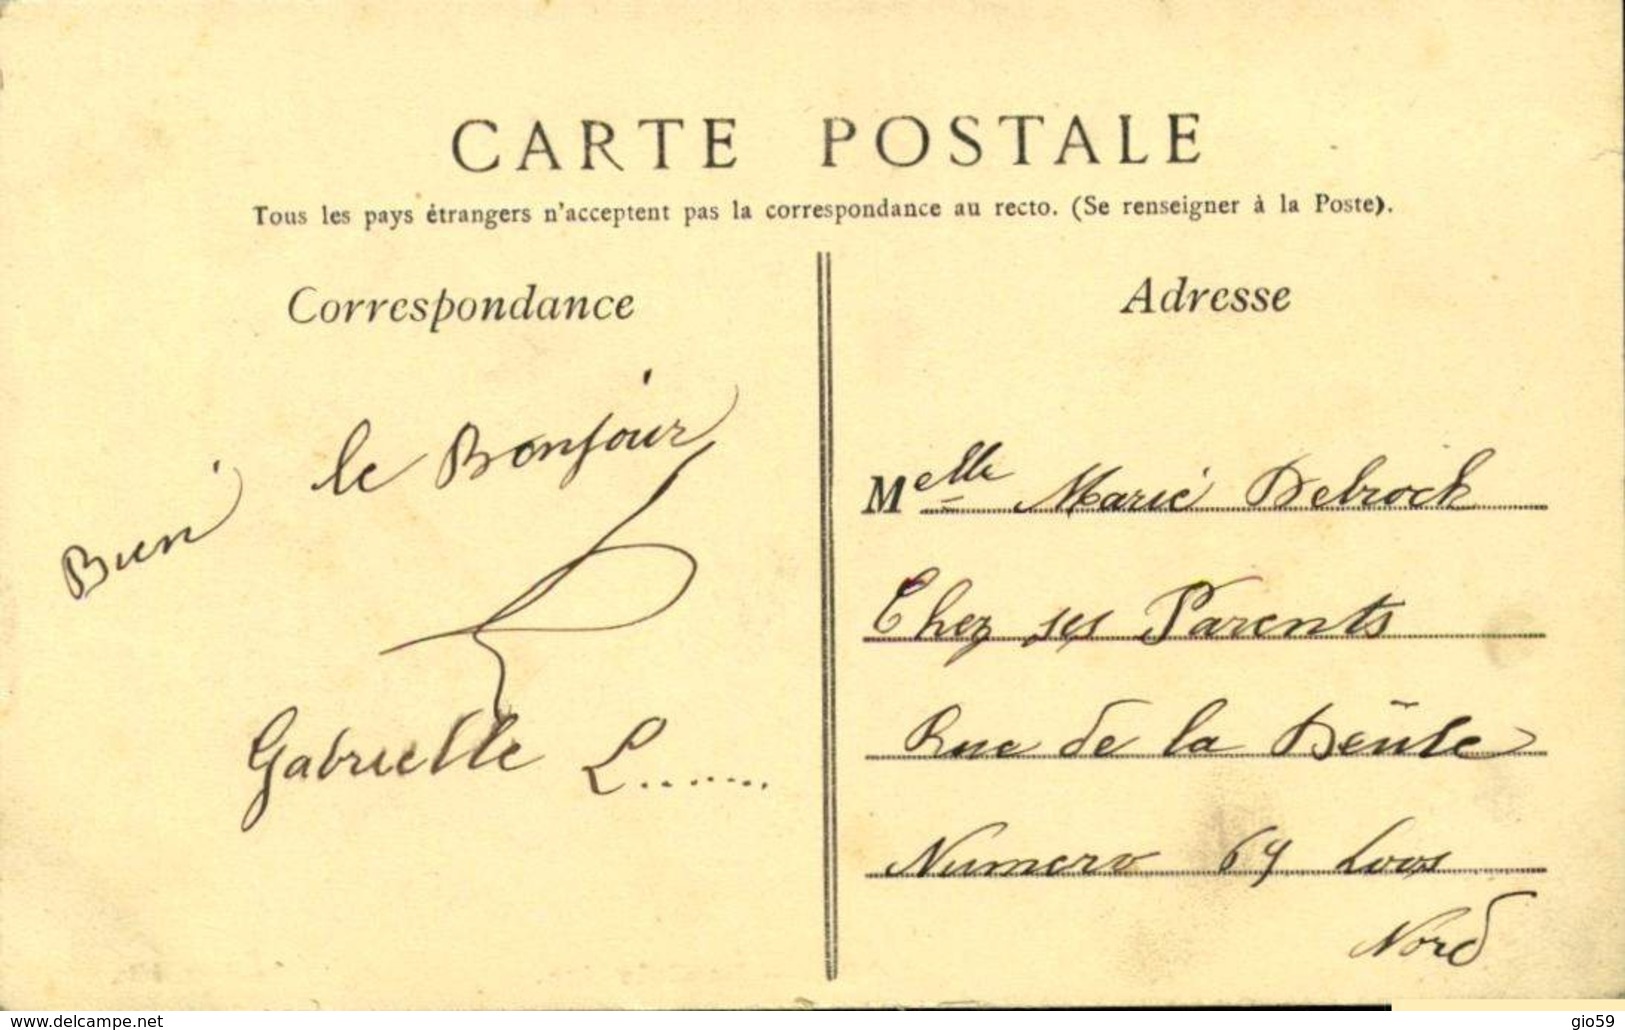 CARTE POSTALE
Tous les pays étrangers n'acceptent pas la correspondance au recto. (Se renseigner à la Poste).
Correspondance
Bien le Bonjour
Gabrielle L.......
Adresse
Melle Marie Debrock
Chez ses Parents
Rue de la Deûle
Numero 64 Loos
Nord
www.delcampe.net
gio59